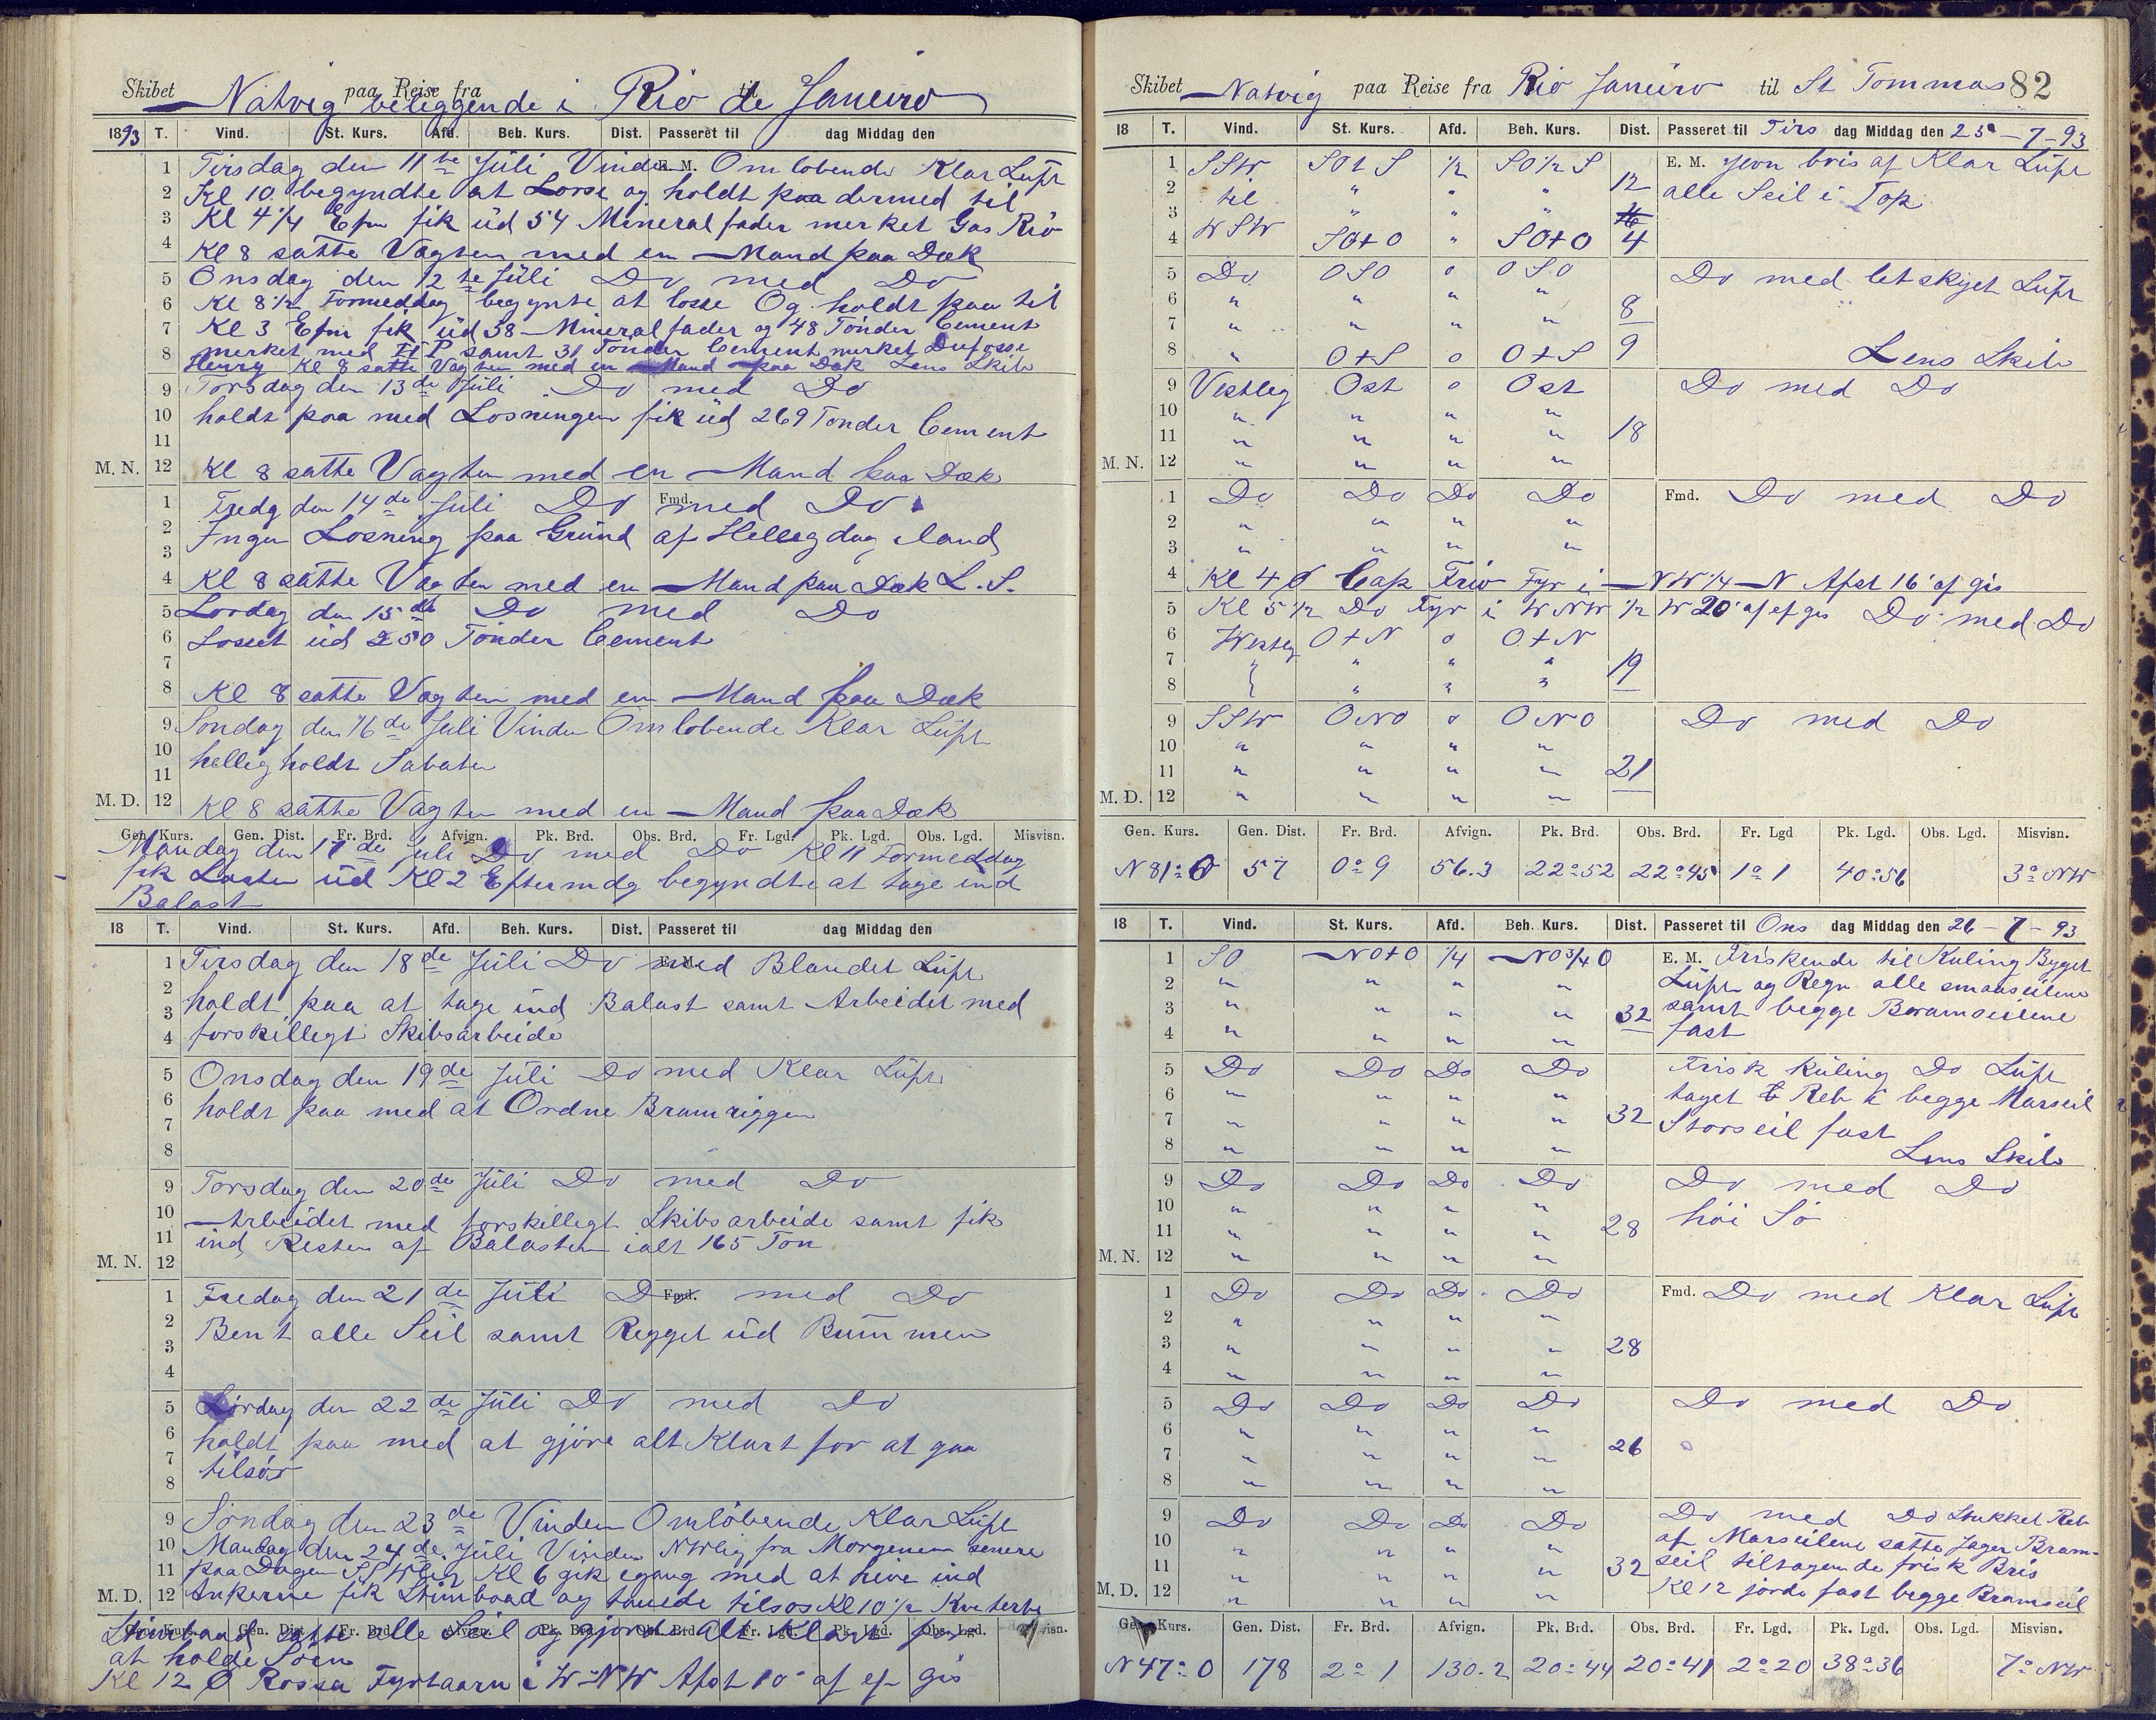 Skibet Natvig paa Reise fra beleggende i Rio de til Janeiro
1893 T. Vind. St. Kurs. Afd. Beh. Kurs. Dist. Passeret til dag Middag den
1 Tirsdag den 11te Juli Vinden E. M. Omlobende Klar Luft
2 Kl 10 begyndte at Losse og holdt paa dermed til
3 Kl 4 1/4 Efm fik üd 54 Mineral fader merket Gas Rio
4 Kl 8 satte Vagten med en Mand paa Dæk
5 Onsdag den 12te Jüli Do med Do
6 Kl 8 1/2 Formeddag begynte at losse Og holdt paa til
7 Kl 3 Efm fik üd 38 Mineralfader og 48 Tönder Cement
8 merket med H P samt 31 Tönder Cement merket Dufosse
Henry Kl 8 satte Vagten med en Mand paa Dæk Lens Skib
9 Torsdag den 13de Jüli Do med Do
10 holdt paa med Losningen fik üd 269 Tonder Cement
11
M. N. 12 Kl 8 satte Vagten med en Mand paa Dæk
1 Fredg den 14de Jüli Do Fmd. med Do
2 Ingen Losning paa Gründ af Helligdag iland
3
4 Kl 8 satte Vagten med en Mand paa Dæk L. S.
5 Lordag den 15de Do med Do
6 Losset üd 250 Tönder Cement
7
8 Kl 8 satte Vagten med en Mand paa Dæk
9 Sondag den 16de Juli Vinden Omlobende Klar Lüft
10 hellig holdt Sabaten
11
M. D. 12 Kl 8 satte Vagten med en Mand paa Dæk
Gen. Kurs. Gen. Dist. Fr. Brd. Afvign. Pk. Brd. Obs. Brd. Fr. Lgd. Pk. Lgd. Obs. Lgd. Misvisn.
Mandag den 17de Juli Do med Do Kl 11 Formeddag
fik Lasten üd Kl 2 Eftermdg begyndte at tage ind
Balast
18 T. Vind. St. Kurs. Afd. Beh. Kurs. Dist. Passeret til dag Middag den
1 Tirsdag den 18de Jüli Do E. M. med Blandet Lüft
2 holdt paa at tage ind Balast samt Arbeidet med
3
4 forskillegt Skibsarbeide
5 Onsdag den 19de Jüli Do med Klar Lüft
6 holdt paa med at Ordne Bramriggen
7
8
9 Torsdag den 20de Jüli Do med Do
10 Arbeidet med forskillegt Skibsarbeide samt fik
11 ind Resten af Balasten ialt 165 Ton
M. N. 12
1 Fredag den 21de Jüli Do Fmd. med Do
2 Bent alle Seil samt Regget üd Bummen
3
4
5 Lørdag den 22de Jüli Do med Do
6 holdt paa med at gjöre alt Klart for at gaa
7 tilsös
8
9 Söndag den 23de Vinden Omlöbende Klar Lüft
10 Mandag den 24de Jüli Vinden NWlig fra Morgenen senere
11 paa Dagen SSWlig Kl 6 gik igang med at hive ind
M. D. 12 Ankerne fik Stimbaad og tauede tilsos Kl 10 1/2 Kvtterte
Gen. Kurs. Gen. Dist. Fr. Brd. Afvign. Pk. Brd. Obs. Brd. Fr. Lgd. Pk. Lgd. Obs. Lgd. Misvisn.
Stimbaad satte alle Seil og gjorde Alt Klart for
at holde Soen
Kl 12 Ø Rossa Fyrtaarn i W-NW Afst 10' af ef gis
Skibet Natvig paa Reise fra Rio Janeiro til St Tommas 82
18 T. Vind. St. Kurs. Afd. Beh. Kurs. Dist. Passeret til Tirs dag Middag den 25-7-93
1 SSW SOtS 1/2 SO 1/2 S E. M. Jevn bris af Klar Lüft
2 til " " " 12 alle Seil i Top
3 " " "
4 WSW SOtO " SOtO 4
5 Do OSO o OSO Do med letskyet Lüft
6 " " " " 8
7 " " " "
8 " OtS o OtS 9 Lens Skib
9 Vestleg Ost o Ost Do med Do
10 " " " "
11 " " " " 18
M. N. 12 " " " "
1 Do Do Do Do Fmd. Do med Do
2 " " " "
3 " " " "
4 Kl 4 Ø Cap Frio Fyr i NW 1/4 N Afst 16' af gis
5 Kl 5 1/2 Do Fyr i WNW 1/2 W 20' af ef gis Do med Do
6 Westleg OtN o OtN
7 " " " 19
8 " " "
9 SSW ONO o ONO Do med Do
10 " " " "
11 " " " " 21
M. D. 12 " " " "
Gen. Kurs. Gen. Dist. Fr. Brd. Afvign. Pk. Brd. Obs. Brd. Fr. Lgd Pk. Lgd. Obs. Lgd. Misvisn.
N 81° O 57 0° 9 56.3 22°52 22°45 1° 1 40°56 3° NW
18 T. Vind. St. Kurs. Afd. Beh. Kurs. Dist. Passeret til Ons dag Middag den 26-7-93
1 SO NOtO 1/4 NO 3/4 O E. M. Friskende til Kuling Byget
2 " " " " Lüft og Regn alle smaaseilene
3 " " " " 32 samt begge Bramseilene
4 " " " " fast
5 Do Do Do Do Frisk Küling Do Lüft
6 " " " " taget Reb i begge Marseil
7 " " " " 32 Storseil fast
8 " " " " Lens Skib
9 Do Do Do Do Do med Do
10 " " " " höi Sö
11 " " " " 28
M. N. 12 " " " "
1 Do Do Do Do Fmd. Do med Klar Lüft
2 " " " "
3 " " " " 28
4 " " " "
5 Do Do Do Do Do med Do
6 " " " "
7 " " " " 26
8 " " " "
9 Do Do Do Do Do med Do Stukket Reb
10 " " " " af Marseilene satte Jager Bram-
11 " " " " 32 seil tiltagende frisk Bris
M. D. 12 " " " " Kl 12 jorde fast begge Bramseil
Gen. Kurs. Gen. Dist. Fr. Brd. Afvign. Pk. Brd. Obs. Brd. Fr. Lgd. Pk. Lgd. Obs. Lgd. Misvisn.
N 47° O 178 2° 1 130.2 20°44 20°41 2°20 38°36 7° NW